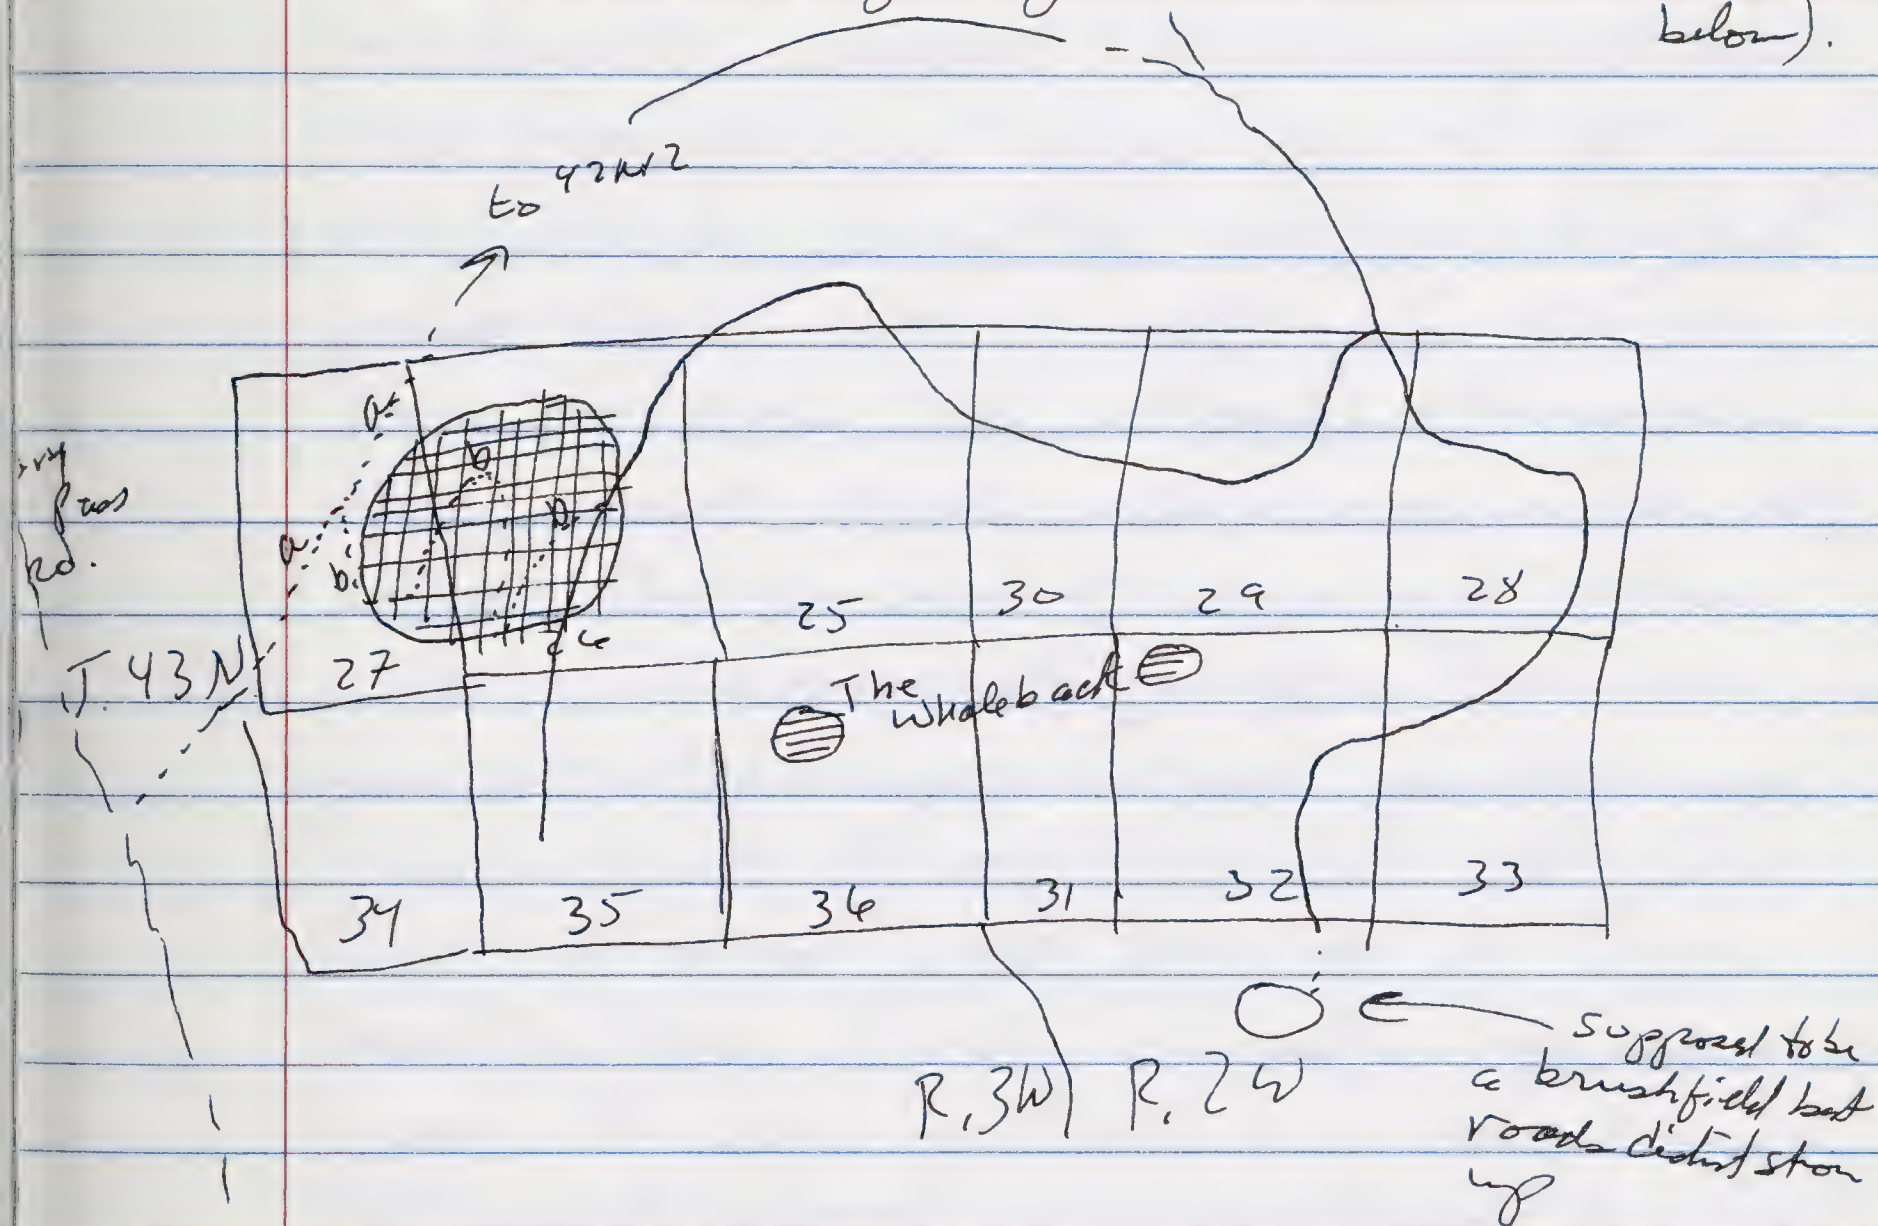 below).
to 42N12
a
b
b
a
b
Rd.
25
30
29
28
26
T. 43 N
27
The
Whaleback
34
35
36
31
32
33
R. 3W
R. 2W
supposed to be
a brushfield but
roads didn't show
up